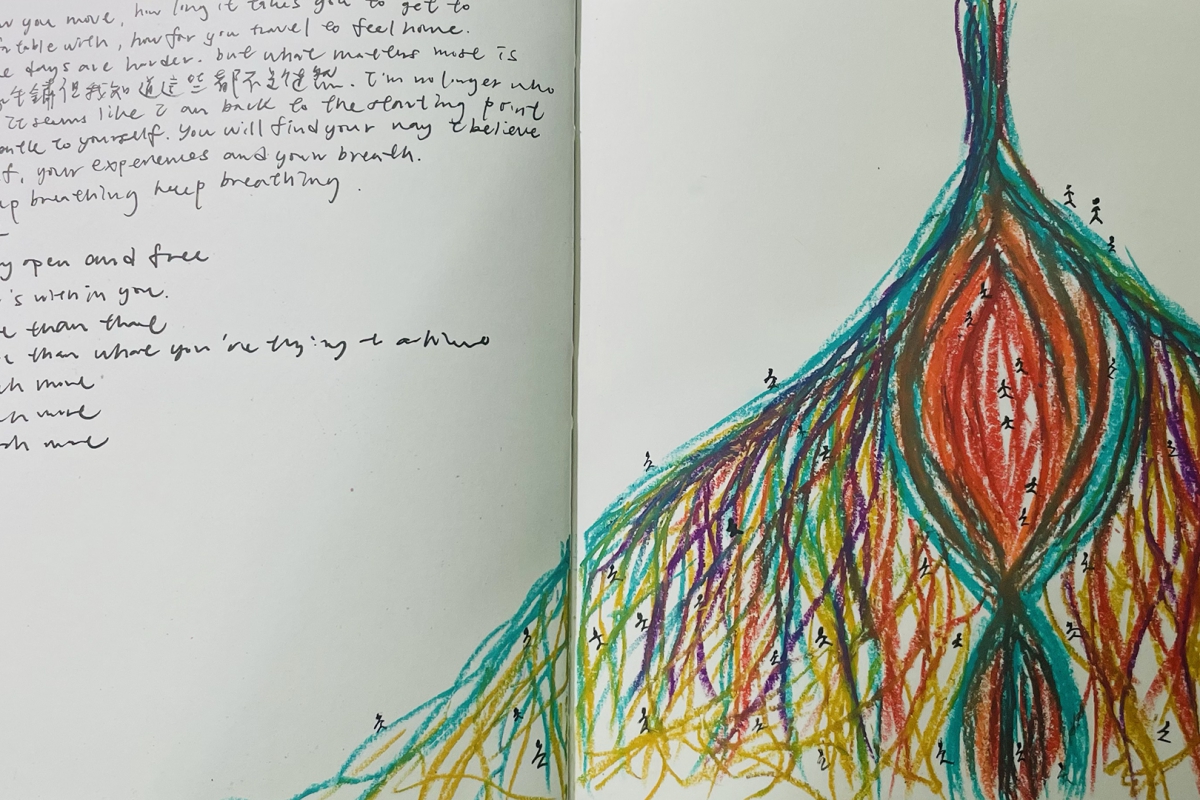 you move, how long it takes you to get to
with, how far you travel to feel home.
days are harder. but what matters most is
但我知道這些都不是健忘. I'm no longer who
it seems like I am back to the starting point
to yourself. You will find your way & believe
your experiences and your breath.
breathing keep breathing.
open and free
's within you.
than that
than what you're trying to achieve
more
more
more